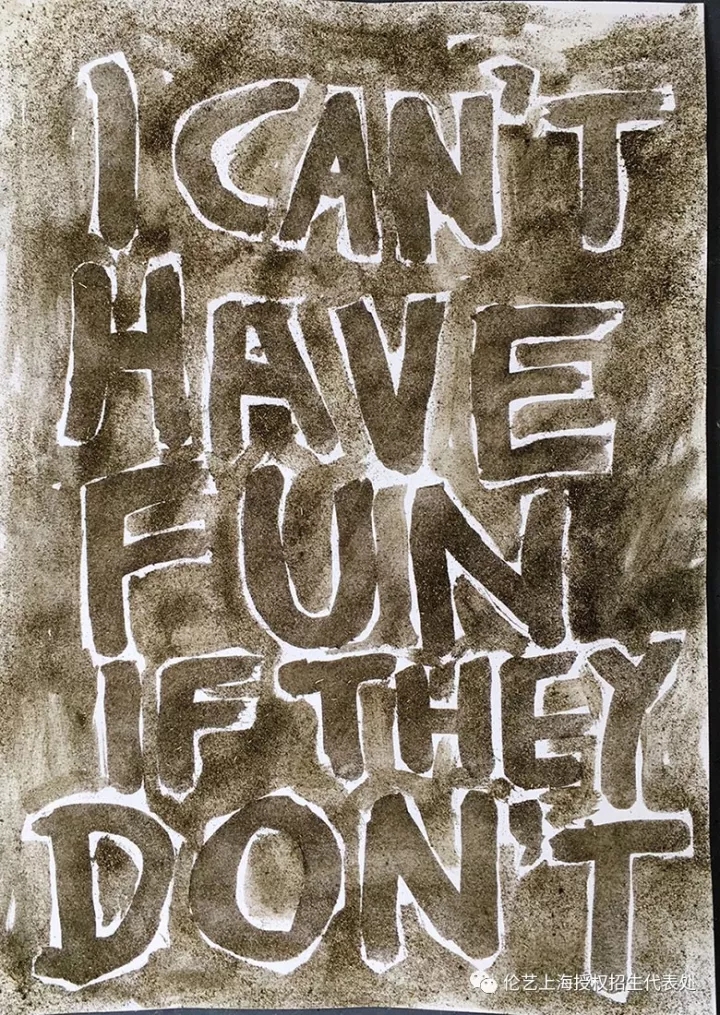 I CAN'T
HAVE
FUN
IF THEY
DON'T
伦艺上海授权招生代表处